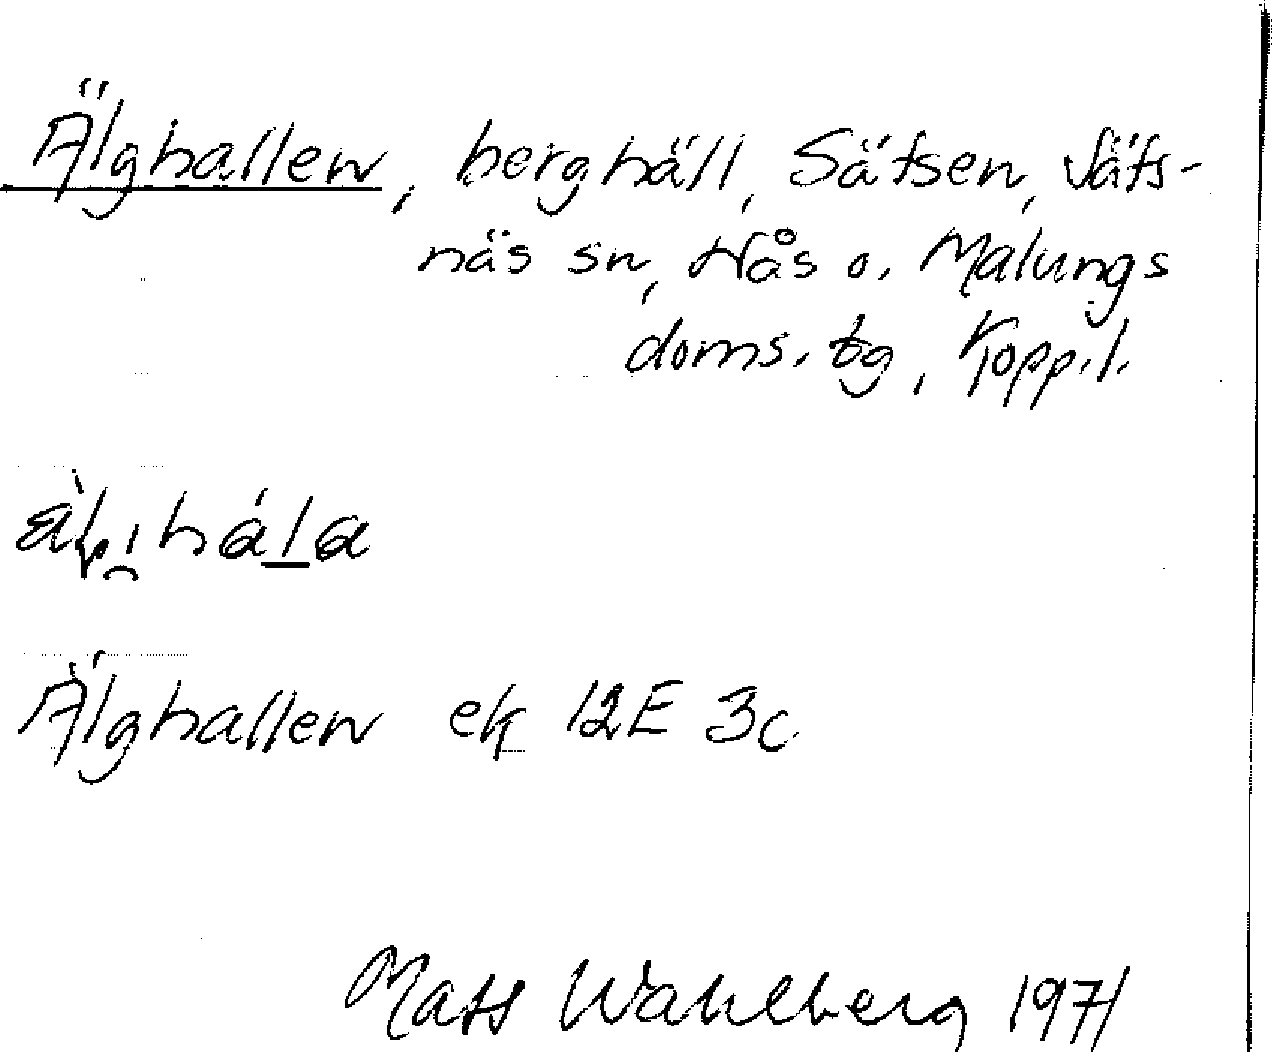 Älghallen, berghäll, Sätsen, Säfs-
näs sn, Nås o. Malungs
doms. tg, Kopp.l.
Älghallen ek 12E 3c
Mats Wahlberg 1971